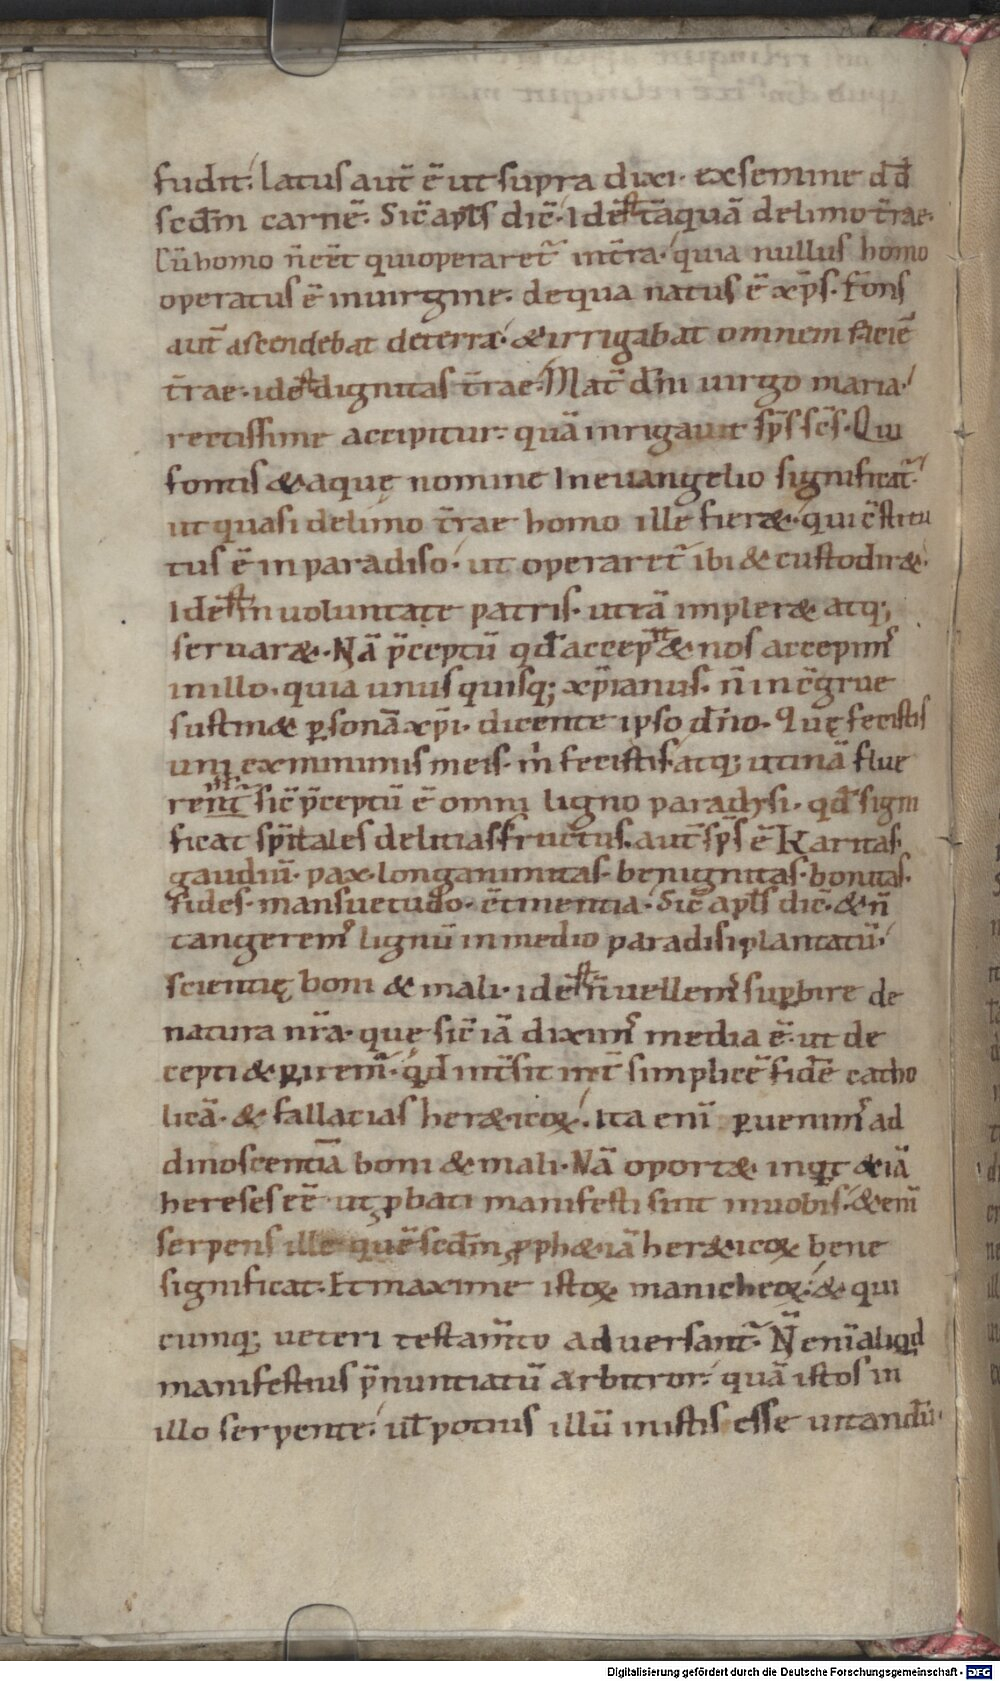 fudit. latus aut̄ ē ut supra dixi. ex semine dd̄
scdm̄ carnē. Sic̄ apl̄s dic̄. Idē tāquā delimo tr̄ae.
Cū homo n̄ eēt qui operaret̄ inter̄ra. quia nullus homo
operatus ē inuirgine. dequa natus ē xp̄s. fons
aut̄ ascendebat deterra. & irrigabat omnem faciē
tr̄ae. idē dignitas tr̄ae. Mat̄ dn̄i uirgo maria.
rectissime accipitur. quā inrigauit sp̄s sc̄s. Qui
fontis & aquę nomine In euangelio significat̄.
ut quasi delimo tr̄ae homo ille fier&. qui c̄stitu
tus ē in paradiso. ut operaret̄ ibi & custodir&.
Idē in uoluntate patris. ut eā impler& atq;
seruar&. Nā p̄ceptū qd̄ accep̄ & nos accepim᾽
inillo. quia unus quisq; xp̄ianus. n̄ inc̄grue
sustin& ꝑsonā xp̄i. dicente ipso dn̄o. Quę fecistis
uni ex minimis meis. m̄ fecistis. atq; utinā flue
rent̄ sic̄ p̄ceptū ē omni ligno paradysi. qd̄ signi
ficat sp̄itales delitias fructus. aut̄ sp̄s ē Karitas.
gaudiū. pax. longanimitas. benignitas. bonitas.
fides. mansuetudo. c̄tinentia. Sic̄ apl̄s dic̄. & n̄
tangerem᾽ lignū inmedio paradisi plantatū.
scientię boni & mali. idē n̄ uellem᾽ suꝑbire de
natura nr̄a. quę sic̄ iā dixim᾽ media ē. ut de
cepti & ꝑirem᾽. qd̄ int̄sit int̄ simplicē fidē catho
licā. & fallacias her&icoꝝ. Ita enī ꝑuenim᾽ ad
dinoscentiā boni & mali. Nā oport& inqt & iā
hereses eē ut ꝓbati manifesti sint inuobis. & enī
serpens ille quē scdm̄ ꝓph&iā her&icoꝝ bene
significat. Et maxime istoꝝ manicheoꝝ. & qui
cumq; ueteri testam̄to aduersant̄. N̄ enī aliqd
manifestius p̄nuntiatū arbitror. quā istos in
illo serpente. ul̄ potius illū inistis esse uitandū.
Digitalisierung gefördert durch die Deutsche Forschungsgemeinschaft - DFG